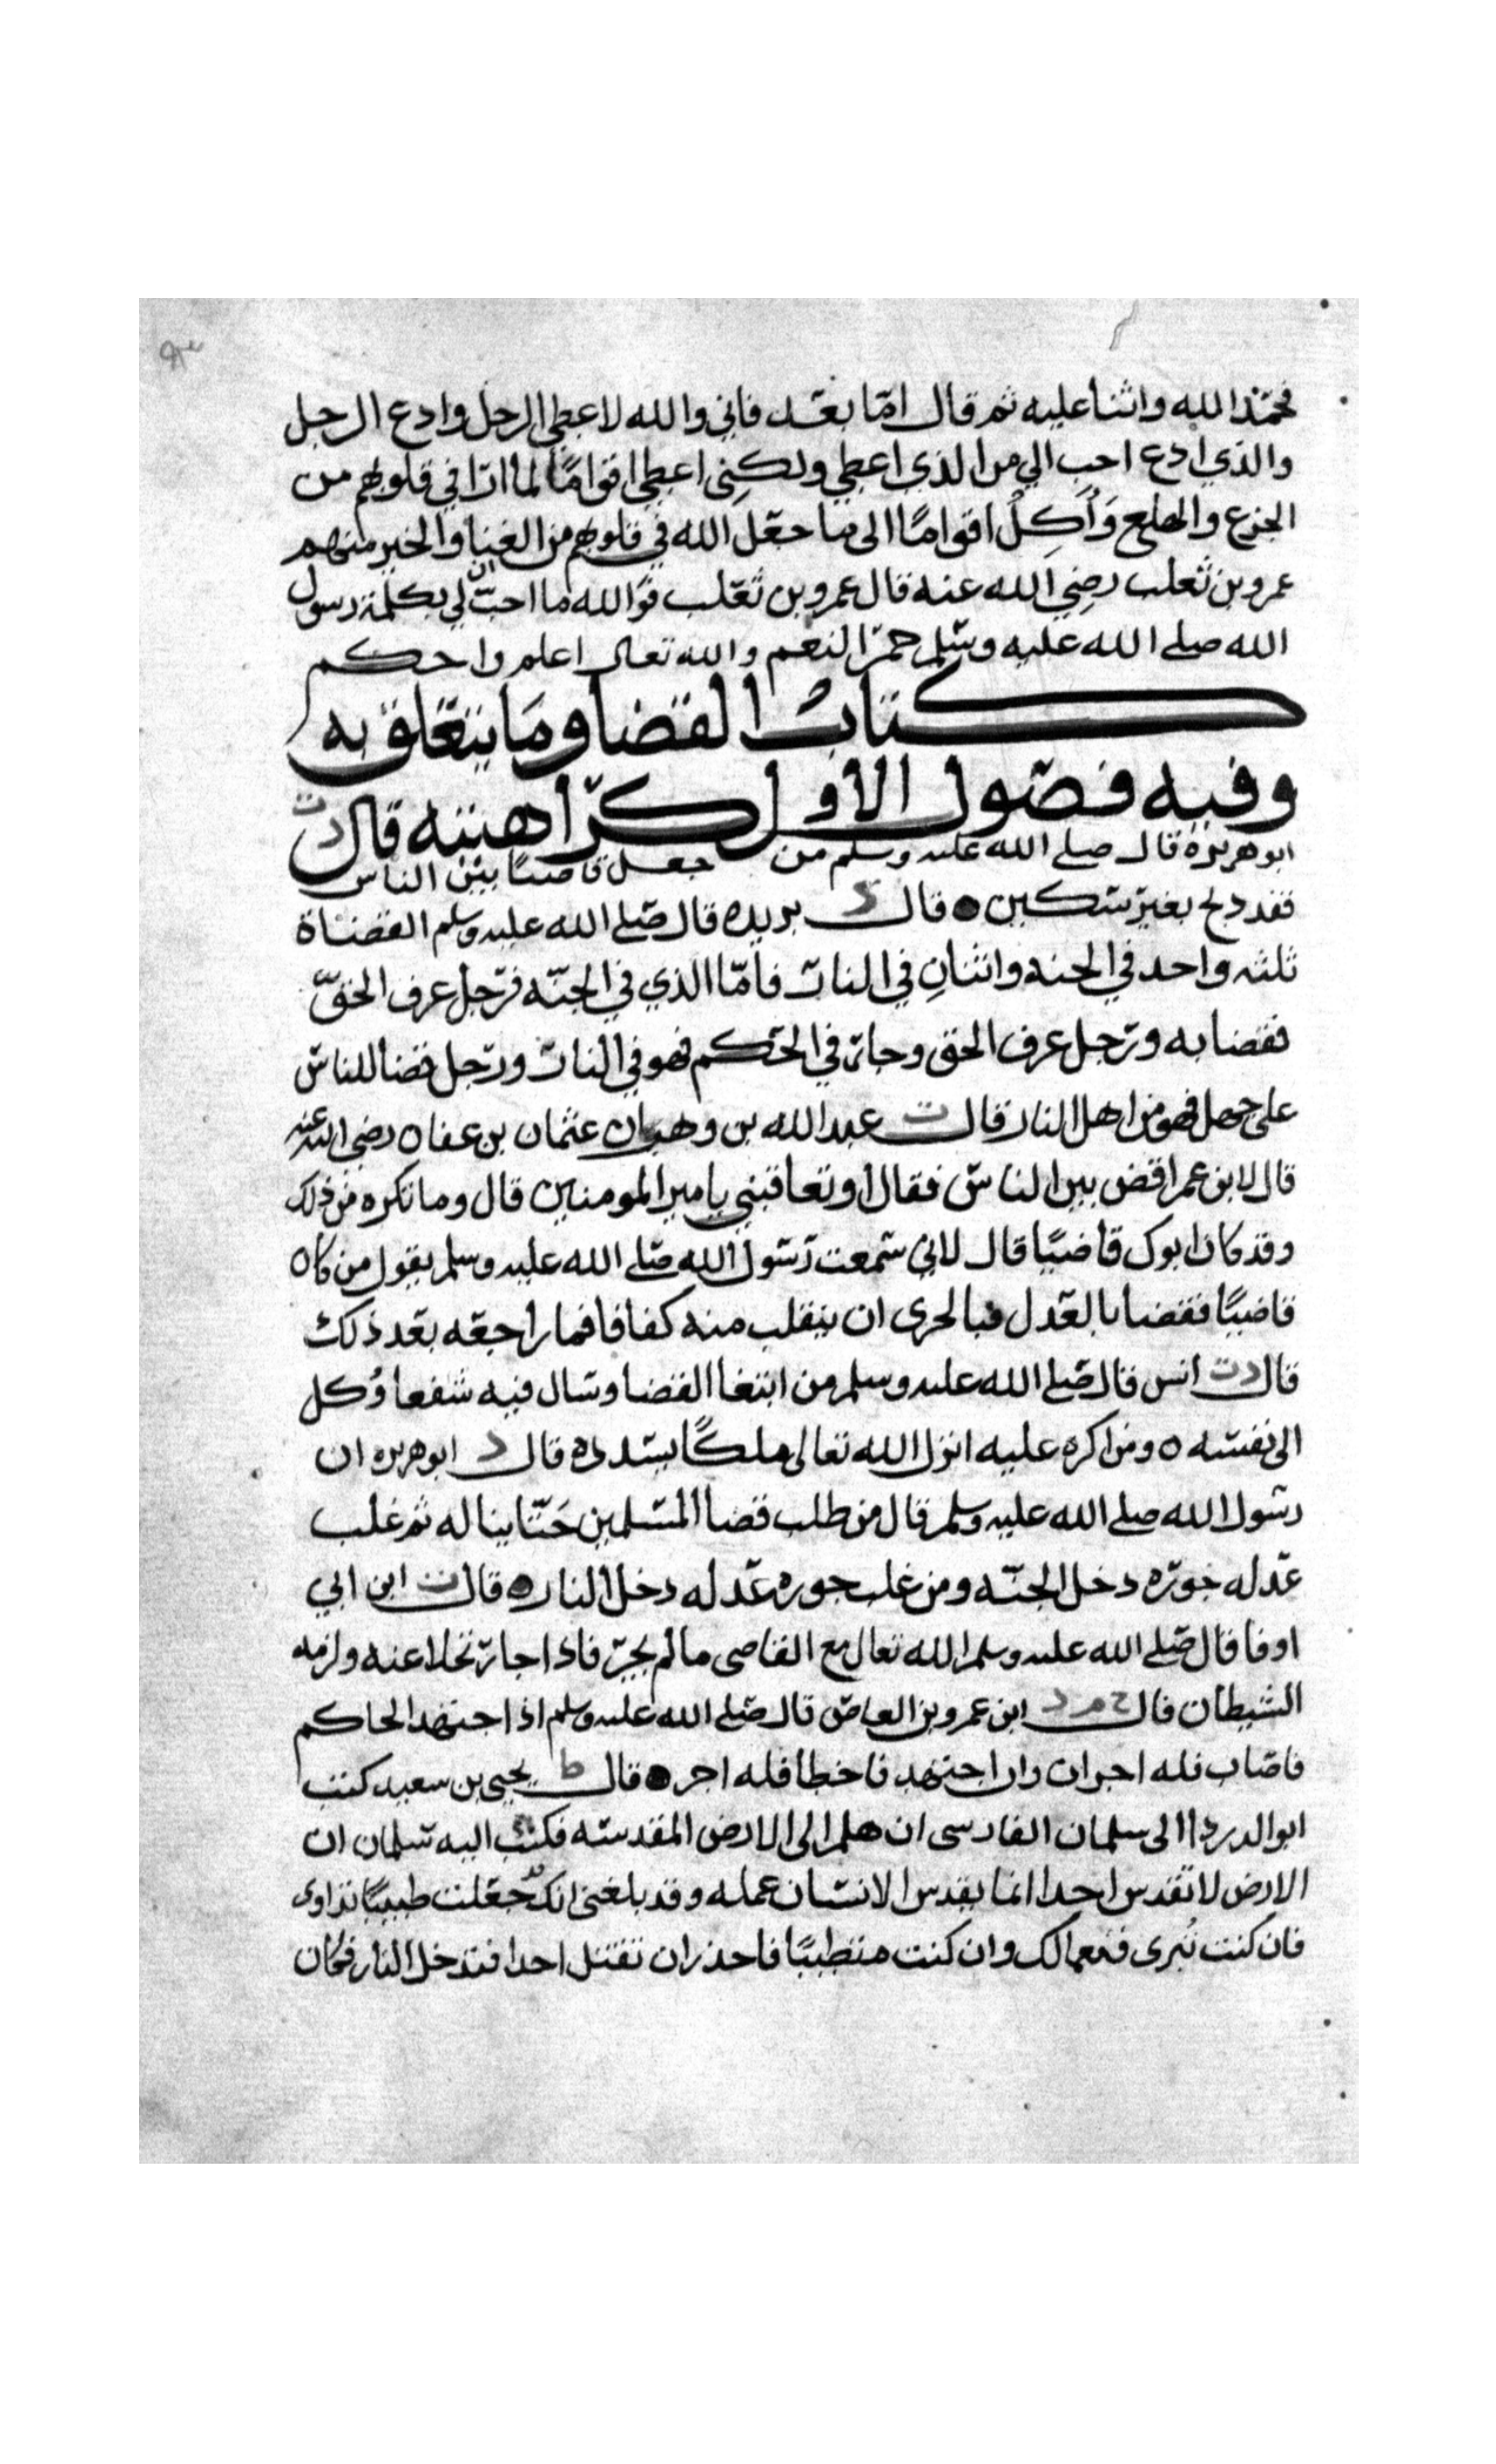 فحمد الله واثنا عليه ثم قال امّا بعد فاني والله لاعطي الرجل وادع الرجل
والذي ادع احب الي من الذي اعطي ولكِنى اعطي اقوامًا لما ارا في قلوبهم من
الجزع والهلع وَأَكِلُ اقوامًا الى ما جعل الله في قلوبهم من الغنا والخير منهم
عمرو بن تغلب رضي الله عنه قال عمرو بن تغلب فوالله ما احبّ ان لي بكلمة رسول
الله صلى الله عليه وسلم حمر النعم والله تعالى اعلم واحكم
كتاب القضا وما يتعلق به
وفيه فصول الاول كراهيته قال د ت
ابو هريرة قال صلى الله عليه وسلم من جعل قاضيًا بين الناس
فقد ذبح بغير سكين قال د بريده قال صلى الله عليه وسلم القضاة
ثلثه واحد في الجنه واثنانِ في النار فامّا الذي في الجنّه فرجل عرف الحقّ
فقضا به ورجل عرف الحق وجار في الحكم فهو في النار ورجل قضا للناس
على جهل فهو من اهل النار قال ت عبد الله بن وهب ان عثمان بن عفان رضي الله عنه
قال لابن عمر اقض بين الناس فقال او تعاقبني يا مير المومنين قال وما تكره من ذلك
وقد كان ابوك قاضيًا قال لاني سمعت رسول الله صلى الله عليه وسلم يقول من كان
قاضيًا فقضا بالعدل فبالحرى ان ينقلب منه كفافا فما راجعه بعد ذلك
قال د ت انس قال صلى الله عليه وسلم من ابتغا القضا وسال فيه شفعا وُكل
الى نفسه ومن اكره عليه انزل الله تعالى ملكًا يسدده قال د ابو هريره ان
رسول الله صلى الله عليه وسلم قال من طلب قضا المسلمين حَتّا يناله ثم غلب
عدله جوره دخل الجنّه ومن غلب جوره عدله دخل النار قال ت ابن ابي
اوفا قال صلى الله عليه وسلم الله تعالى مع القاضى ما لم يجر فاذا جار تخلا عنه ولزمه
الشيطان قال خ م د ابن عمرو بن العاص قال صلى الله عليه وسلم اذا اجتهد الحاكم
فاصاب فله اجران وان اجتهد فاخطا فله اجر قال ط يحيى بن سعيد كتب
ابو الدردا الى سلمان الفارسى ان هلم الى الارض المقدسه فكتب اليه سلمان ان
الارض لا تقدس احدا انما يقدس الانسان عمله وقد بلغنى انك قد جعلت طبيبًا تداوى
فان كنت تُبرى فنعما لك وان كنت متطببًا فاحذر ان تقتل احدا فتدخل النار فكان